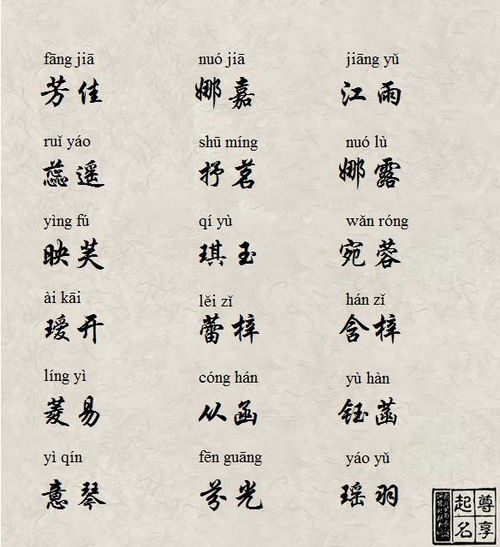 fāng jiā nuó jiā jiāng yǔ
芳佳 娜嘉 江雨
ruǐ yáo shū míng nuó lù
蕊遥 抒茗 娜露
yìng fú qí yù wǎn róng
映芙 琪玉 宛蓉
ài kāi lěi zǐ hán zǐ
瑷开 蕾梓 含梓
líng yì cóng hán yù hàn
菱易 从函 钰菡
yì qín fēn guāng yáo yǔ
意琴 芬光 瑶羽
尊享
起名